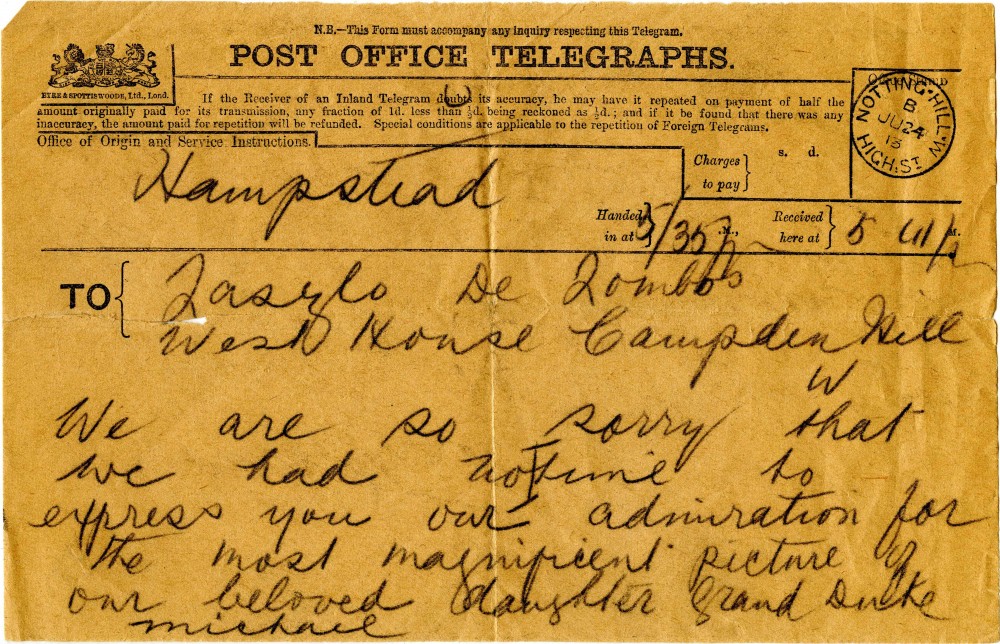 N.B.—This Form must accompany any inquiry respecting this Telegram.
POST OFFICE TELEGRAPHS.
EYRE & SPOTTISWOODE, Ltd., Lond.
If the Receiver of an Inland Telegram doubts its accuracy, he may have it repeated on payment of half the
amount originally paid for its transmission, any fraction of 1d. less than ½d. being reckoned as ½d.; and if it be found that there was any
inaccuracy, the amount paid for repetition will be refunded. Special conditions are applicable to the repetition of Foreign Telegrams.
Office of Origin and Service Instructions.
Hampstead
Charges
to pay
s. d.
NOTTING·HILL·W
B
JU 24
13
HIGH. ST
Handed
in at
5/35
.M.,
Received
here at
5 41
M.
TO
Laszlo De Lombos
West House Campden Hill
W
We are so sorry that
we had no time to
express you our admiration for
the most magnificent picture of
our beloved daughter Grand Duke
Michael